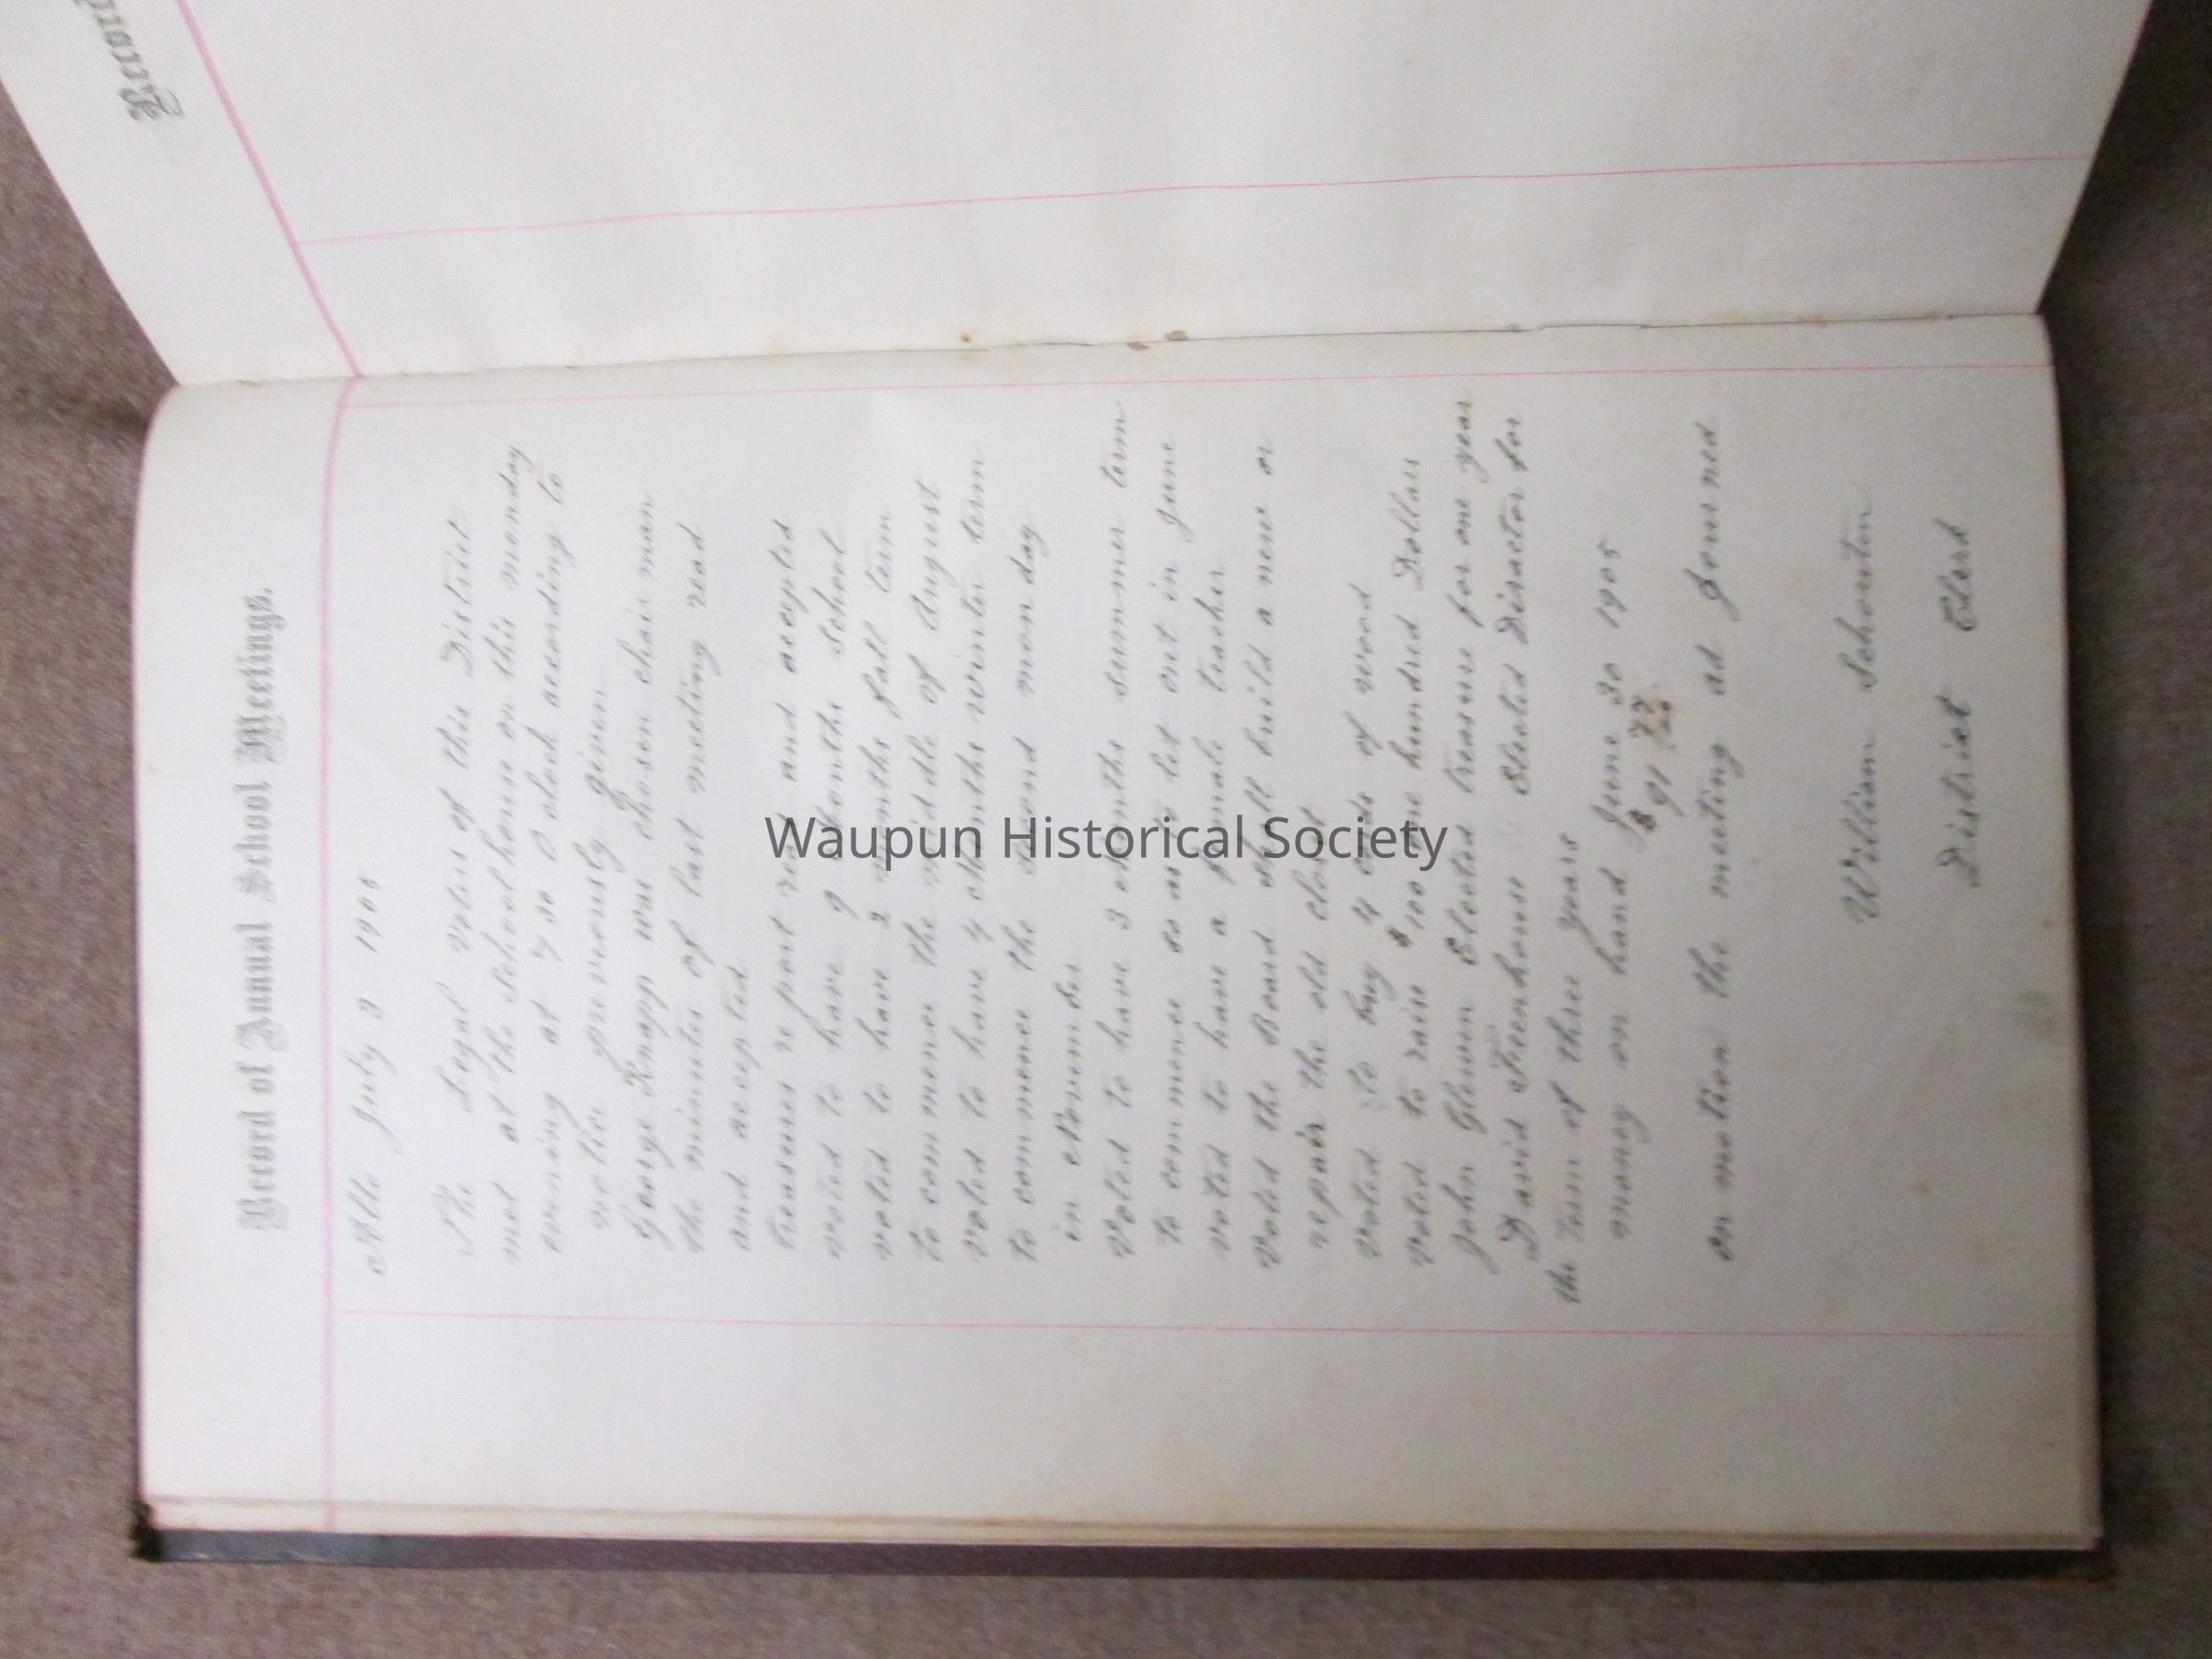 Record of Annual School Meetings.
Alto July 3 1905
The Legal voters of this District
met at the Schoolhouse on this monday
evening at 7 30 O clock according to
notice previously given
George Knapp was chosen chair man
the minutes of last meeting read
and accepted
Treasures re port read and accepted
voted to have 9 Months School
voted to have 2 months fall term
to com mence the middle of August
voted to have 4 Months winter term
to commence the second mon day
in November
Voted to have 3 Months summer term
to com mence so as to let out in June
voted to have a female teacher
Voted the Board shall build a new or
repair the old closet
Voted to buy 4 cords of wood
voted to raise $100 one hundred Dollars
John Glewen Elected treasure for one year
David Freenhouse Elected Director for
the term of three years
money on hand June 30 1905
$ 91
on motion the meeting ad journed
William Schouten
District Clerk
Waupun Historical Society